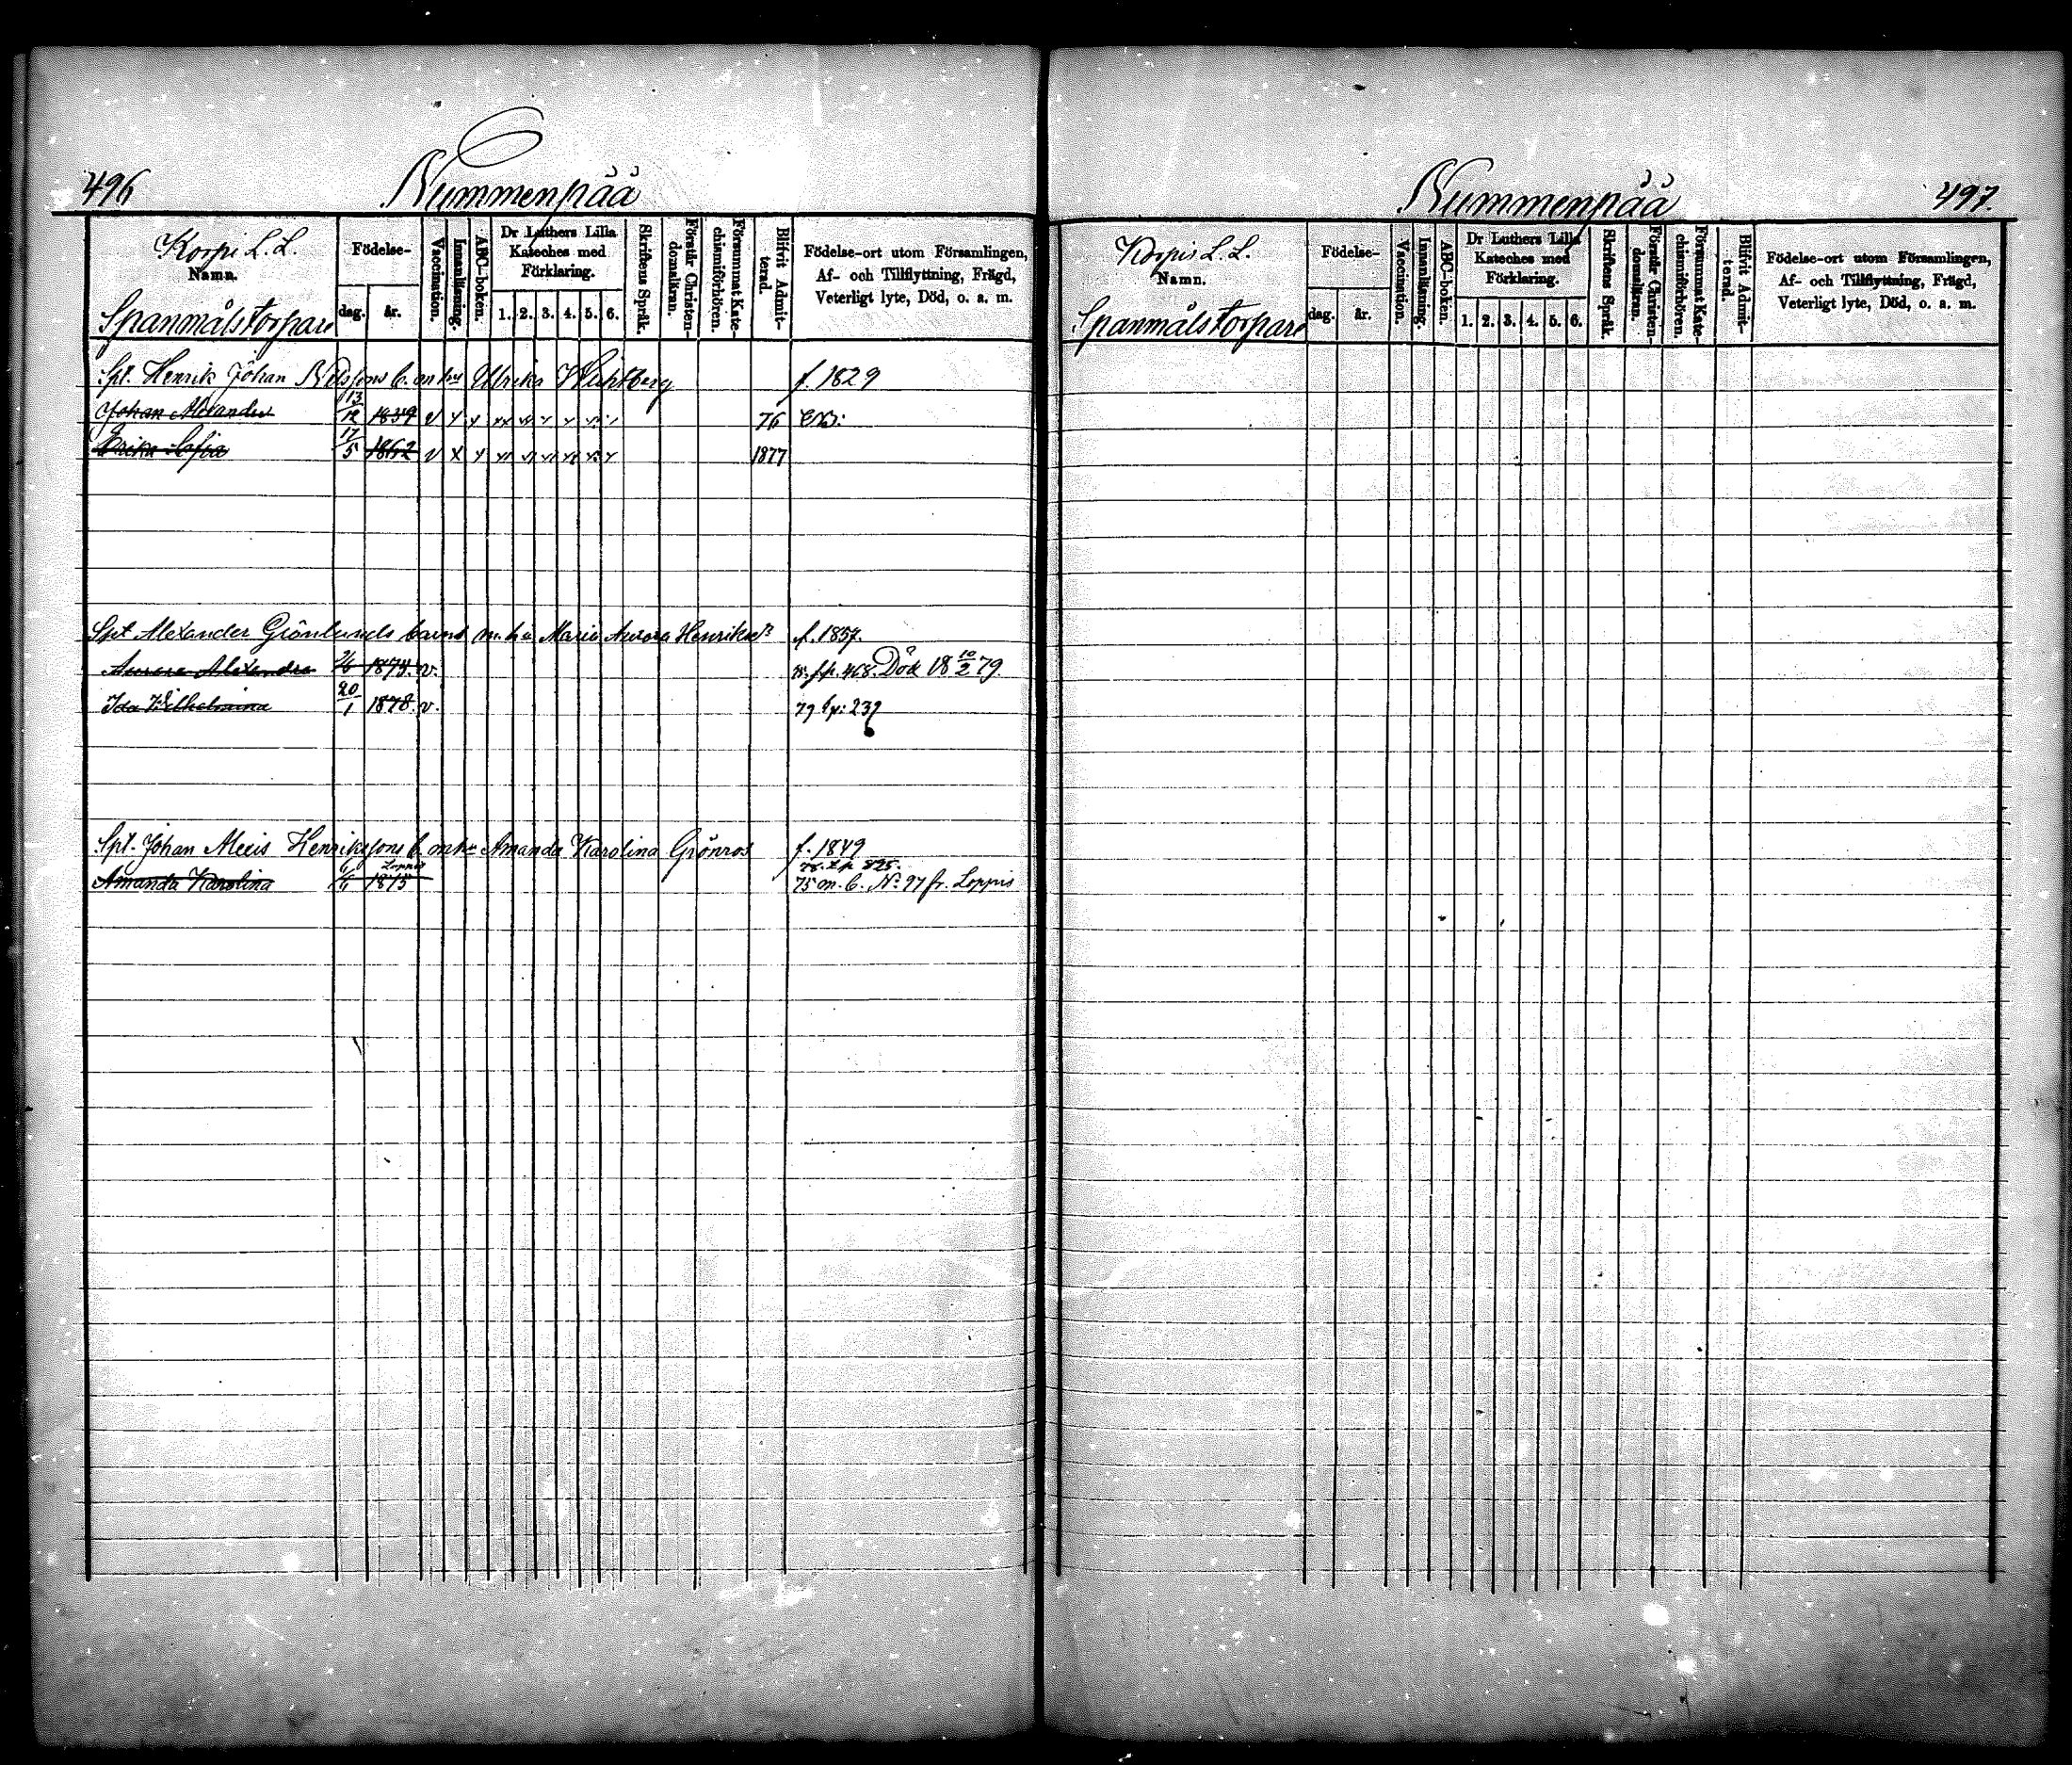 496
Nummenpää
Korpi L. L.
Namn.
Spanmåls torpare
Födelse-
dag.
år.
Vaccination.
Innanläsning.
ABC-boken.
Dr Luthers Lilla
Kateches med
Förklaring.
1. 2. 3. 4. 5. 6.
Skriftens Språk.
Förstår Christen-
domsläran.
Försummat Kate-
chismiförhören.
Blifvit Admit-
terad.
Födelse-ort utom Församlingen,
Af- och Tillflyttning, Frägd,
Veterligt lyte, Död, o. a. m.
Spt. Henrik Johan b. m hu Ulrika f. 1829
Johan Alexander 13/12 1859 v 76
Erika Sofia 17/5 1862 v 1877
Spt Alexander Grönlunds barn m. h u Maria Aurora Henriksd. f. 1857.
Aurora Alexandra v. fr p. 468. Död 18 10/2 79.
Ida Wilhelmina 20/1 1878. v. 79 p: 239
Spt. Johan Alexis Henrikssons b. m hu Amanda Karolina Grönroos f. 1849
78. 825.
Amanda Karolina 6/6 Loppis 1875 75 m. b. No 97 fr. Loppis
Nummenpää
497
Korpis L. L.
Namn.
Spanmåls torpare
Födelse-
dag.
år.
Vaccination.
Innanläsning.
ABC-boken.
Dr Luthers Lilla
Kateches med
Förklaring.
1. 2. 3. 4. 5. 6.
Skriftens Språk.
Förstår Christen-
domsläran.
Försummat Kate-
chismiförhören.
Blifvit Admit-
terad.
Födelse-ort utom Församlingen,
Af- och Tillflyttning, Frägd,
Veterligt lyte, Död, o. a. m.